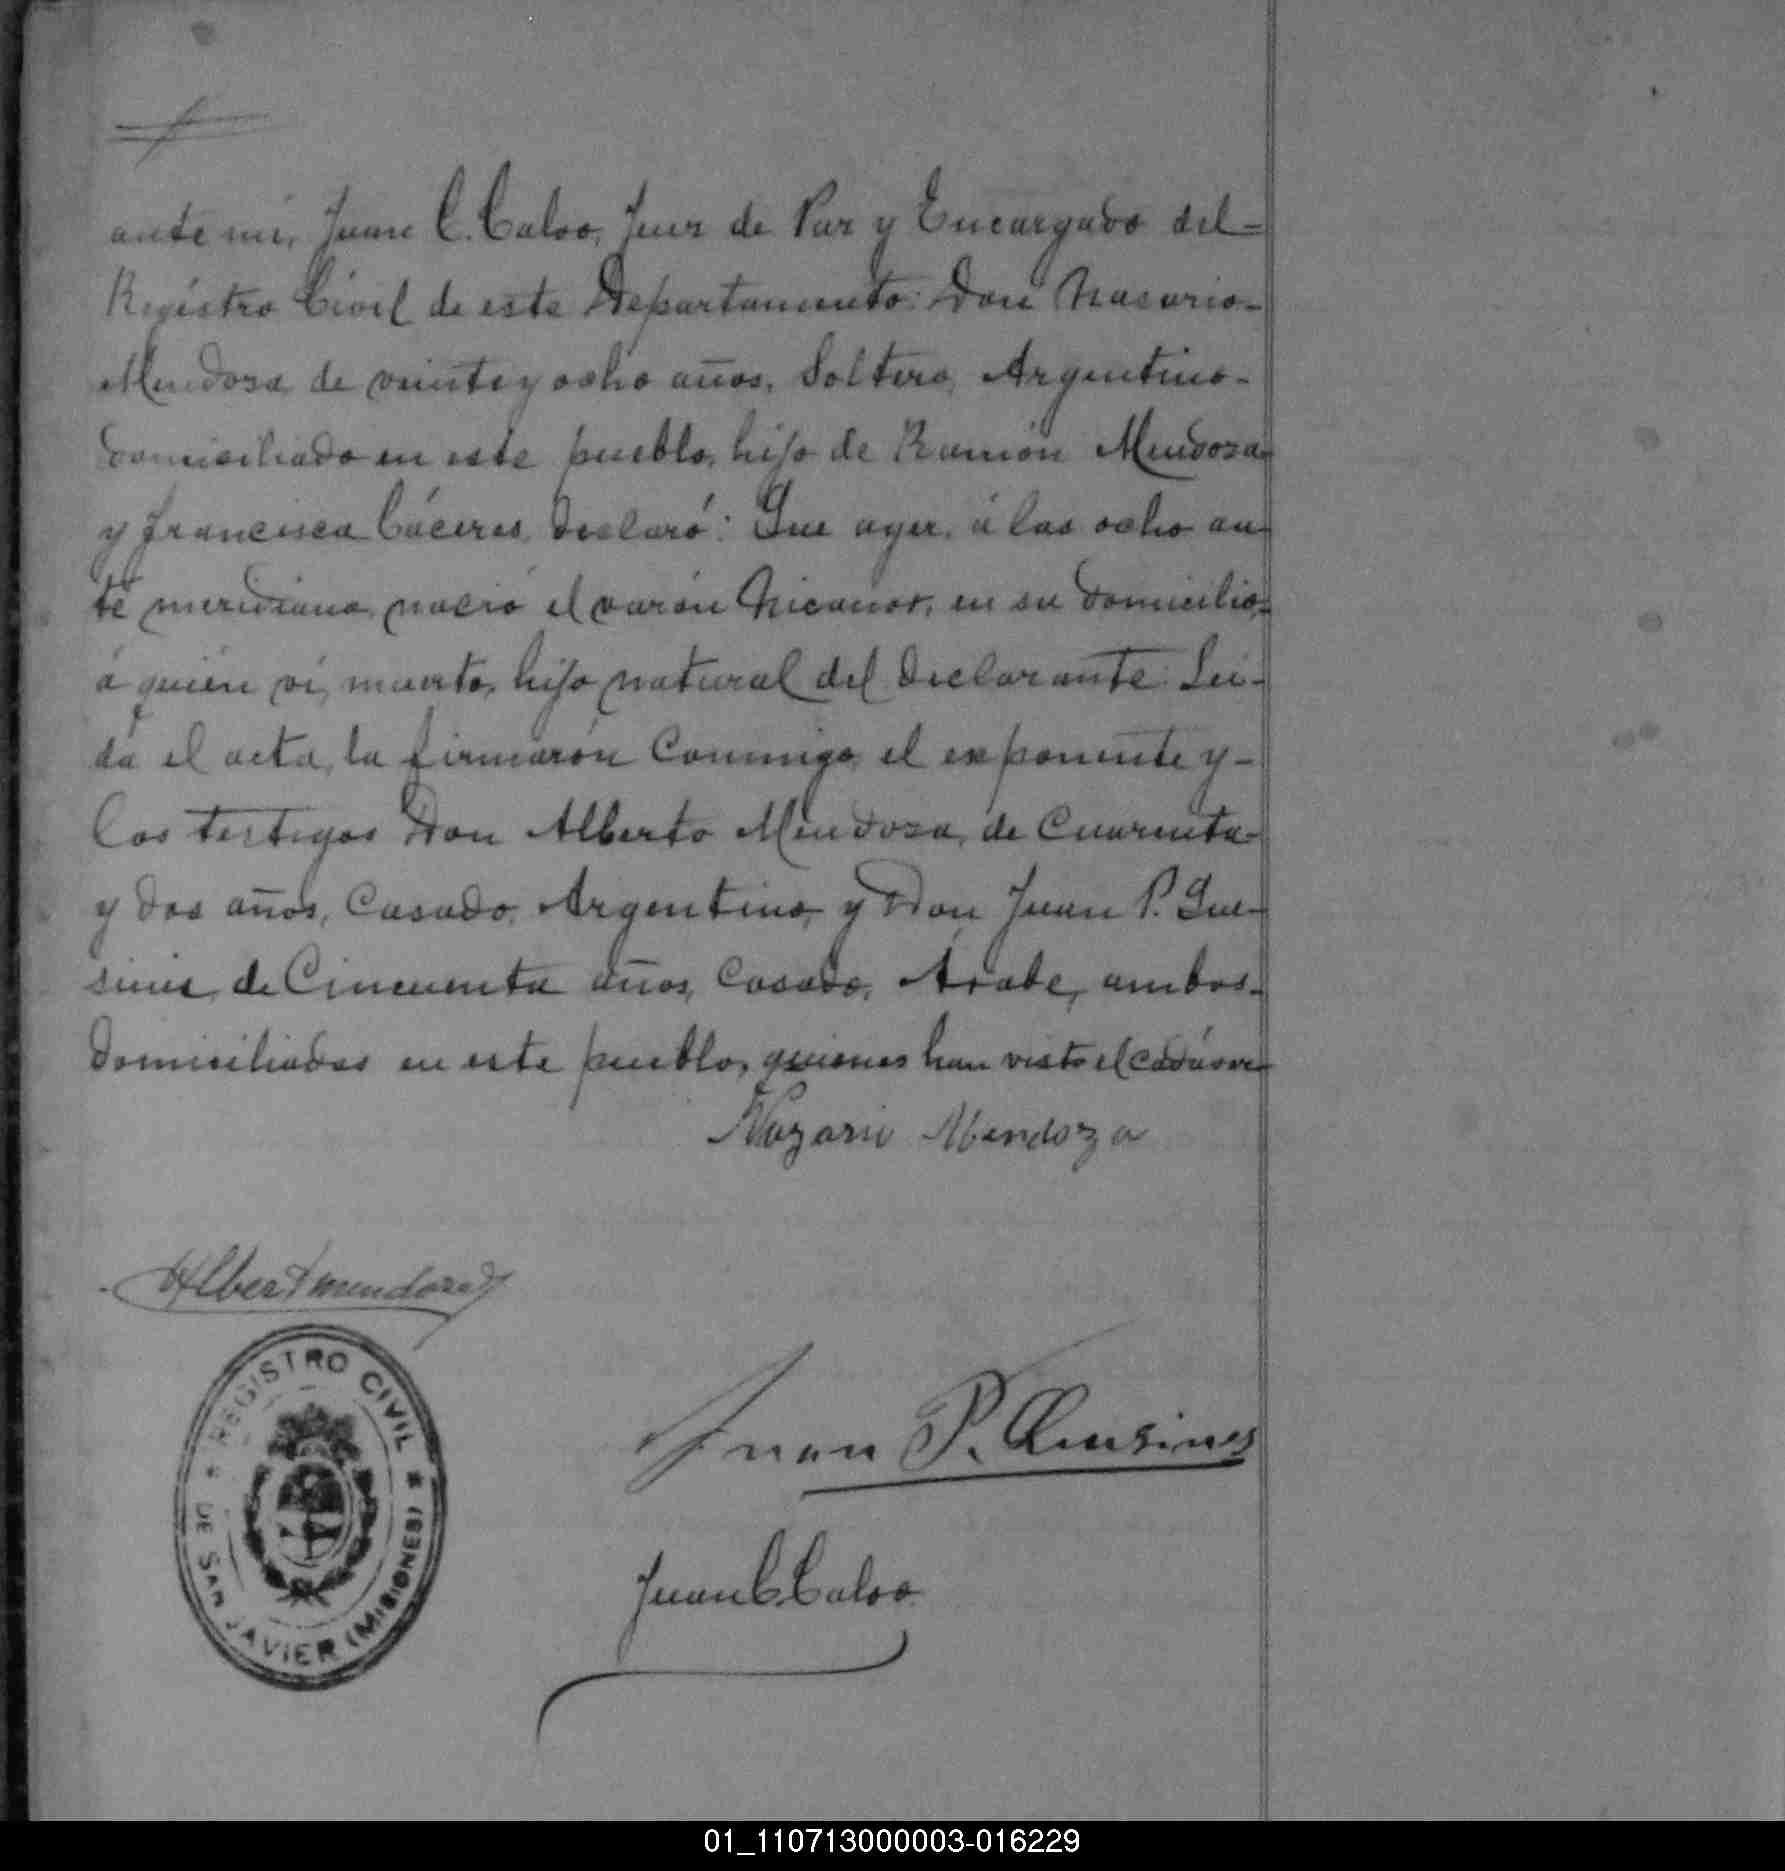 ante mi, Juan C. Calvo, Juez de Paz y Encargado del-
Registro Civil de este Departamento: Don Nasario-
Mendoza, de veinte y ocho años, Soltero, Argentino-
domiciliado en este pueblo, hijo de Ramón Mendoza
y Francisca Cáceres, declaró: Que ayer, á las ocho an-
te meridiano, nació el varón Nicanor, en su domicilio,-
á quién ví, muerto, hijo natural del declarante. Leí-
da el acta, la firmarón conmigo, el exponente y-
los testigos Don Alberto Mendoza, de cuarenta-
y dos años, Casado, Argentino, y Don Juan P. Que-
sines, de Cincuenta años, Casado, Árabe, ambos-
domiciliados en este pueblo, quienes han visto el cadáver
Nazario Mendoza
Albert mendoza
Juan P. Quesines
Juan C. Calvo
REGISTRO CIVIL
DE SAN JAVIER (MISIONES)
01_110713000003-016229